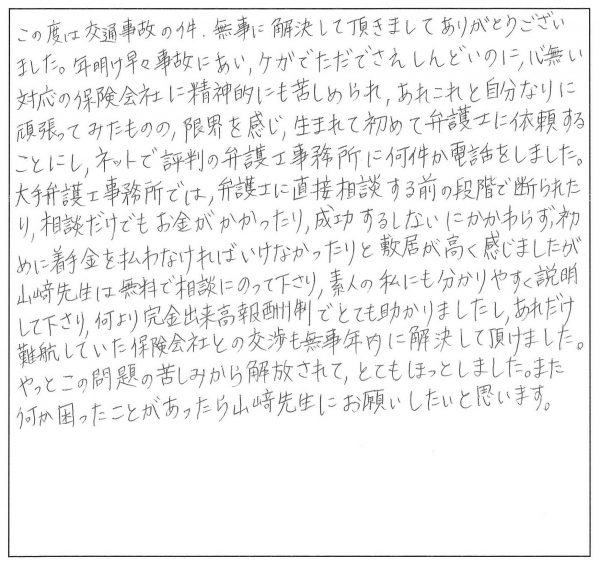 この度は交通事故の件、無事に解決して頂きましてありがとうござい
ました。年明け早々事故にあい、ケガでただでさえしんどいのに、心無い
対応の保険会社に精神的にも苦しめられ、あれこれと自分なりに
頑張ってみたものの、限界を感じ、生まれて初めて弁護士に依頼する
ことにし、ネットで評判の弁護士事務所に何件か電話をしました。
大手弁護士事務所では、弁護士に直接相談する前の段階で断られた
り、相談だけでもお金がかかったり、成功するしないにかかわらず、初
めに着手金を払わなければいけなかったりと敷居が高く感じましたが
山﨑先生は無料で相談にのって下さり、素人の私にも分かりやすく説明
して下さり、何より完全出来高報酬制でとても助かりましたし、あれだけ
難航していた保険会社との交渉も無事年内に解決して頂けました。
やっとこの問題の苦しみから解放されて、とてもほっとしました。また
何か困ったことがあったら山﨑先生にお願いしたいと思います。